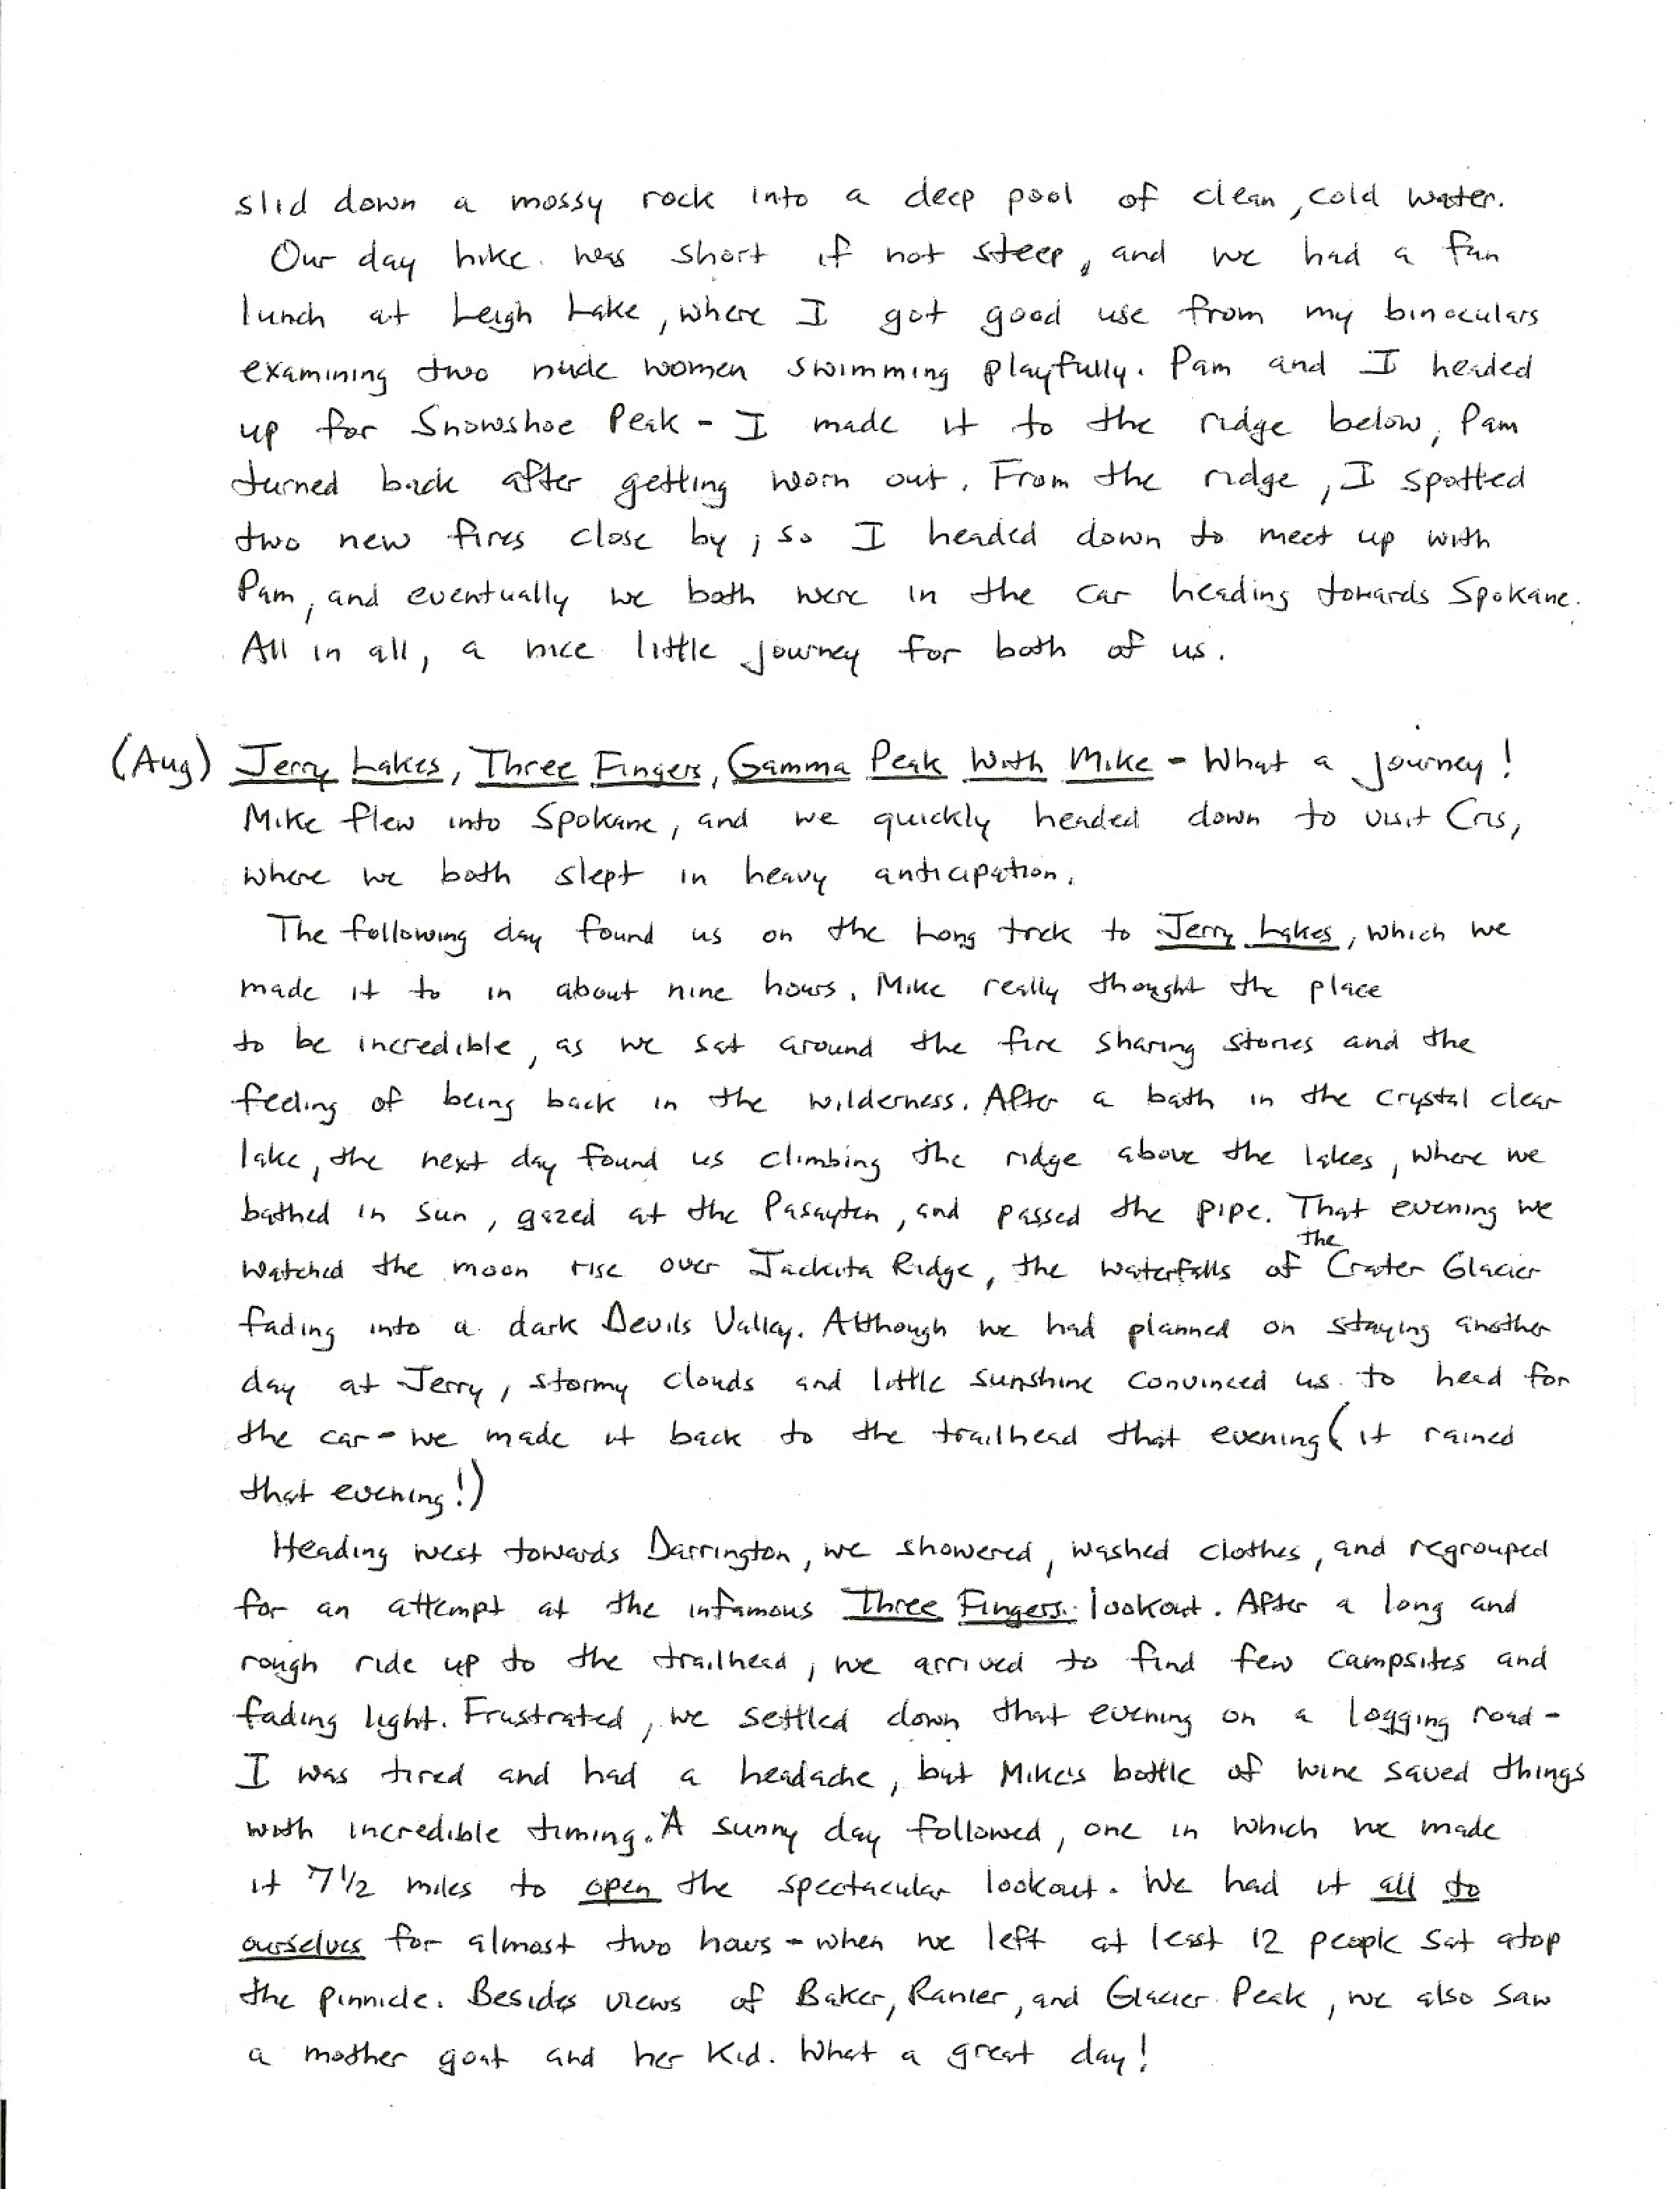 slid down a mossy rock into a deep pool of clean, cold water.
Our day hike was short if not steep, and we had a fun
lunch at Leigh Lake, where I got good use from my binoculars
examining two nude women swimming playfully. Pam and I headed
up for Snowshoe Peak - I made it to the ridge below, Pam
turned back after getting worn out. From the ridge, I spotted
two new fires close by; so I headed down to meet up with
Pam, and eventually we both were in the car heading towards Spokane.
All in all, a nice little journey for both of us.
(Aug) Jerry Lakes, Three Fingers, Gamma Peak With Mike - What a journey!
Mike flew into Spokane, and we quickly headed down to visit Cris,
where we both slept in heavy anticipation.
The following day found us on the long trek to Jerry Lakes, which we
made it to in about nine hours. Mike really thought the place
to be incredible, as we sat around the fire sharing stories and the
feeling of being back in the wilderness. After a bath in the crystal clear
lake, the next day found us climbing the ridge above the lakes, where we
bathed in sun, gazed at the Pasayten, and passed the pipe. That evening we
watched the moon rise over Jackita Ridge, the waterfalls of the Crater Glacier
fading into a dark Devils Valley. Although we had planned on staying another
day at Jerry, stormy clouds and little sunshine convinced us to head for
the car - we made it back to the trailhead that evening (it rained
that evening!)
Heading west towards Darrington, we showered, washed clothes, and regrouped
for an attempt at the infamous Three Fingers lookout. After a long and
rough ride up to the trailhead, we arrived to find few campsites and
fading light. Frustrated, we settled down that evening on a logging road -
I was tired and had a headache, but Mike's bottle of wine saved things
with incredible timing. A sunny day followed, one in which we made
it 7 1/2 miles to open the spectacular lookout. We had it all to
ourselves for almost two hours - when we left at least 12 people sat atop
the pinnicle. Besides views of Baker, Ranier, and Glacier Peak, we also saw
a mother goat and her kid. What a great day!